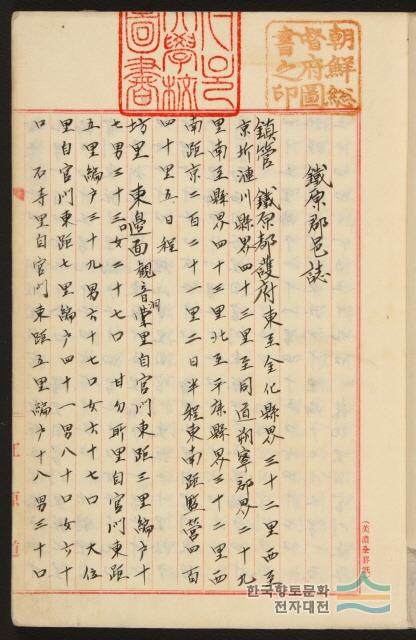 朝鮮総
督府圖
書之印
圖書
鐵原郡邑誌
鎮管 鐵原都護府東至金化縣界三十二里西至
京圻漣川縣界四十三里至同道朔寧郡界二十九
里南至縣界四十三里北至平康縣界三十二里西
南距京二百二十里二日半程東南距監營四百
四十里五日程
坊里 東邊面觀音洞里自官門東距三里編戶十
七男三十三口女二十七口 甘勿所里自官門東距
五里編戶三十九男六十七口女六十七口 大位
里自官門東距七里編戶四十一男八十口女六十
口 石寺里自官門東距五里編戶十八男三十口
江原道
한국향토문화
전자대전